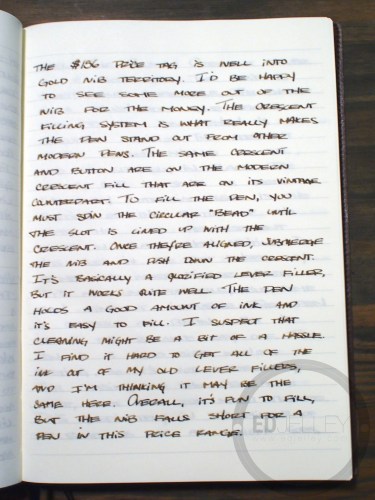 THE $136 PRICE TAG IS WELL INTO
GOLD NIB TERRITORY. I'D BE HAPPY
TO SEE SOME MORE OUT OF THE
NIB FOR THE MONEY. THE CRESCENT
FILLING SYSTEM IS WHAT REALLY MAKES
THE PEN STAND OUT FROM OTHER
MODERN PENS. THE SAME CRESCENT
AND BUTTON ARE ON THE MODERN
CRESCENT FILL THAT ARE ON ITS VINTAGE
COUNTERPART. TO FILL THE PEN, YOU
MUST SPIN THE CIRCULAR "BEAD" UNTIL
THE SLOT IS LINED UP WITH THE
CRESCENT. ONCE THEY'RE ALIGNED, SUBMERGE
THE NIB AND PUSH DOWN THE CRESCENT.
IT'S BASICALLY A GLORIFIED LEVER FILLER,
BUT IT WORKS QUITE WELL. THE PEN
HOLDS A GOOD AMOUNT OF INK AND
IT'S EASY TO FILL. I SUSPECT THAT
CLEANING MIGHT BE A BIT OF A HASSLE
I FIND IT HARD TO GET ALL OF THE
INK OUT OF MY OLD LEVER FILLERS,
AND I'M THINKING IT MAY BE THE
SAME HERE. OVERALL, IT'S FUN TO FILL,
BUT THE NIB FALLS SHORT FOR A
PEN IN THIS PRICE RANGE.
EDJELLEY